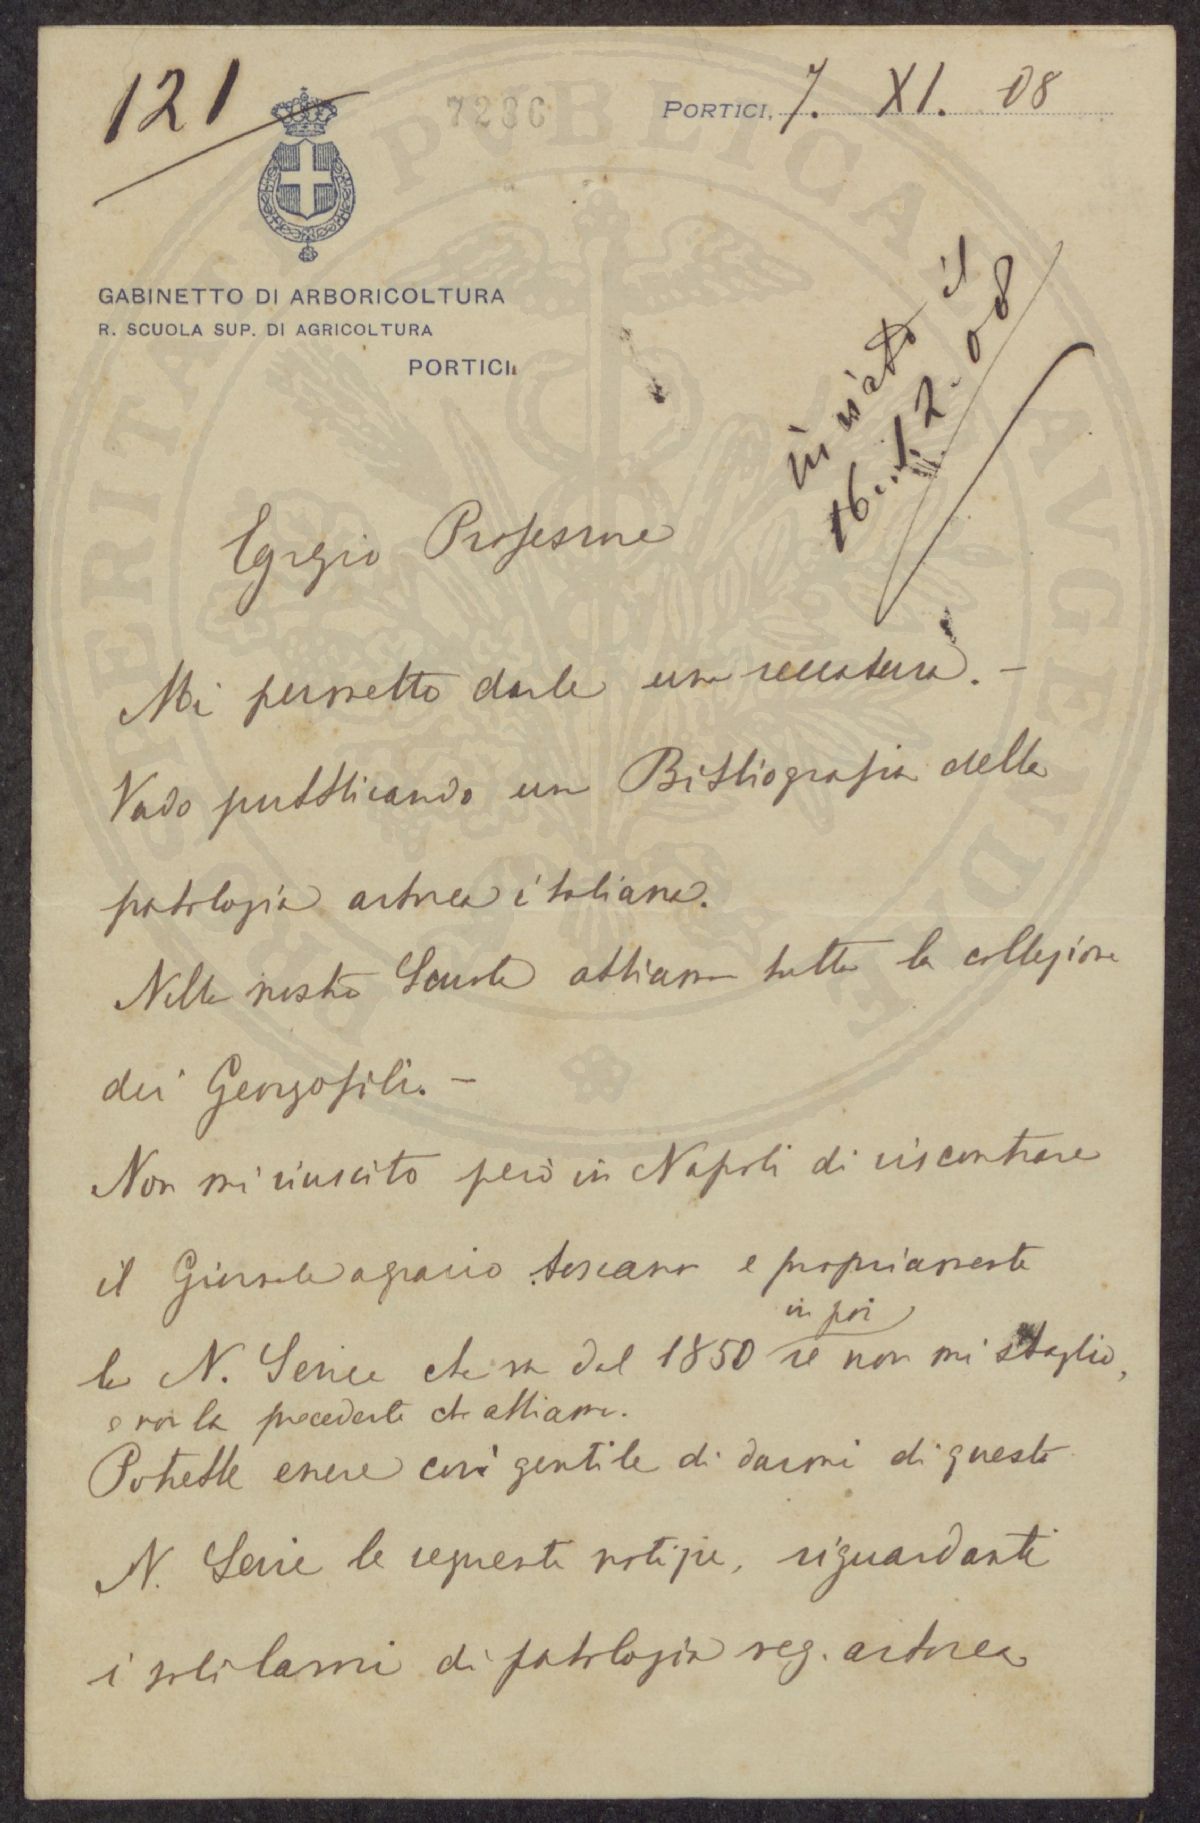 121
7286
PORTICI, 7. XI. 08
GABINETTO DI ARBORICOLTURA
R. SCUOLA SUP. DI AGRICOLTURA
PORTICI
inviato il
16.12.08
Egregio Professore
Mi permetto darle una seccatura. –
Vado pubblicando una Bibliografia della
patologia arborea italiana.
Nella nostra Scuola abbiamo tutta la collezione
dei Georgofili. –
Non mi riuscito però in Napoli di riscontrare
il Giornale agrario toscano e propriamente
la N. Serie che va dal 1850 in poi se non mi sbaglio,
e non la precedente che abbiamo.
Potrebbe essere così gentile di darmi di questa
N. Serie le seguenti notizie, riguardanti
i soli lavori di patologia veg. arborea
PROSPERITATI PUBLICAE AVGENDAE